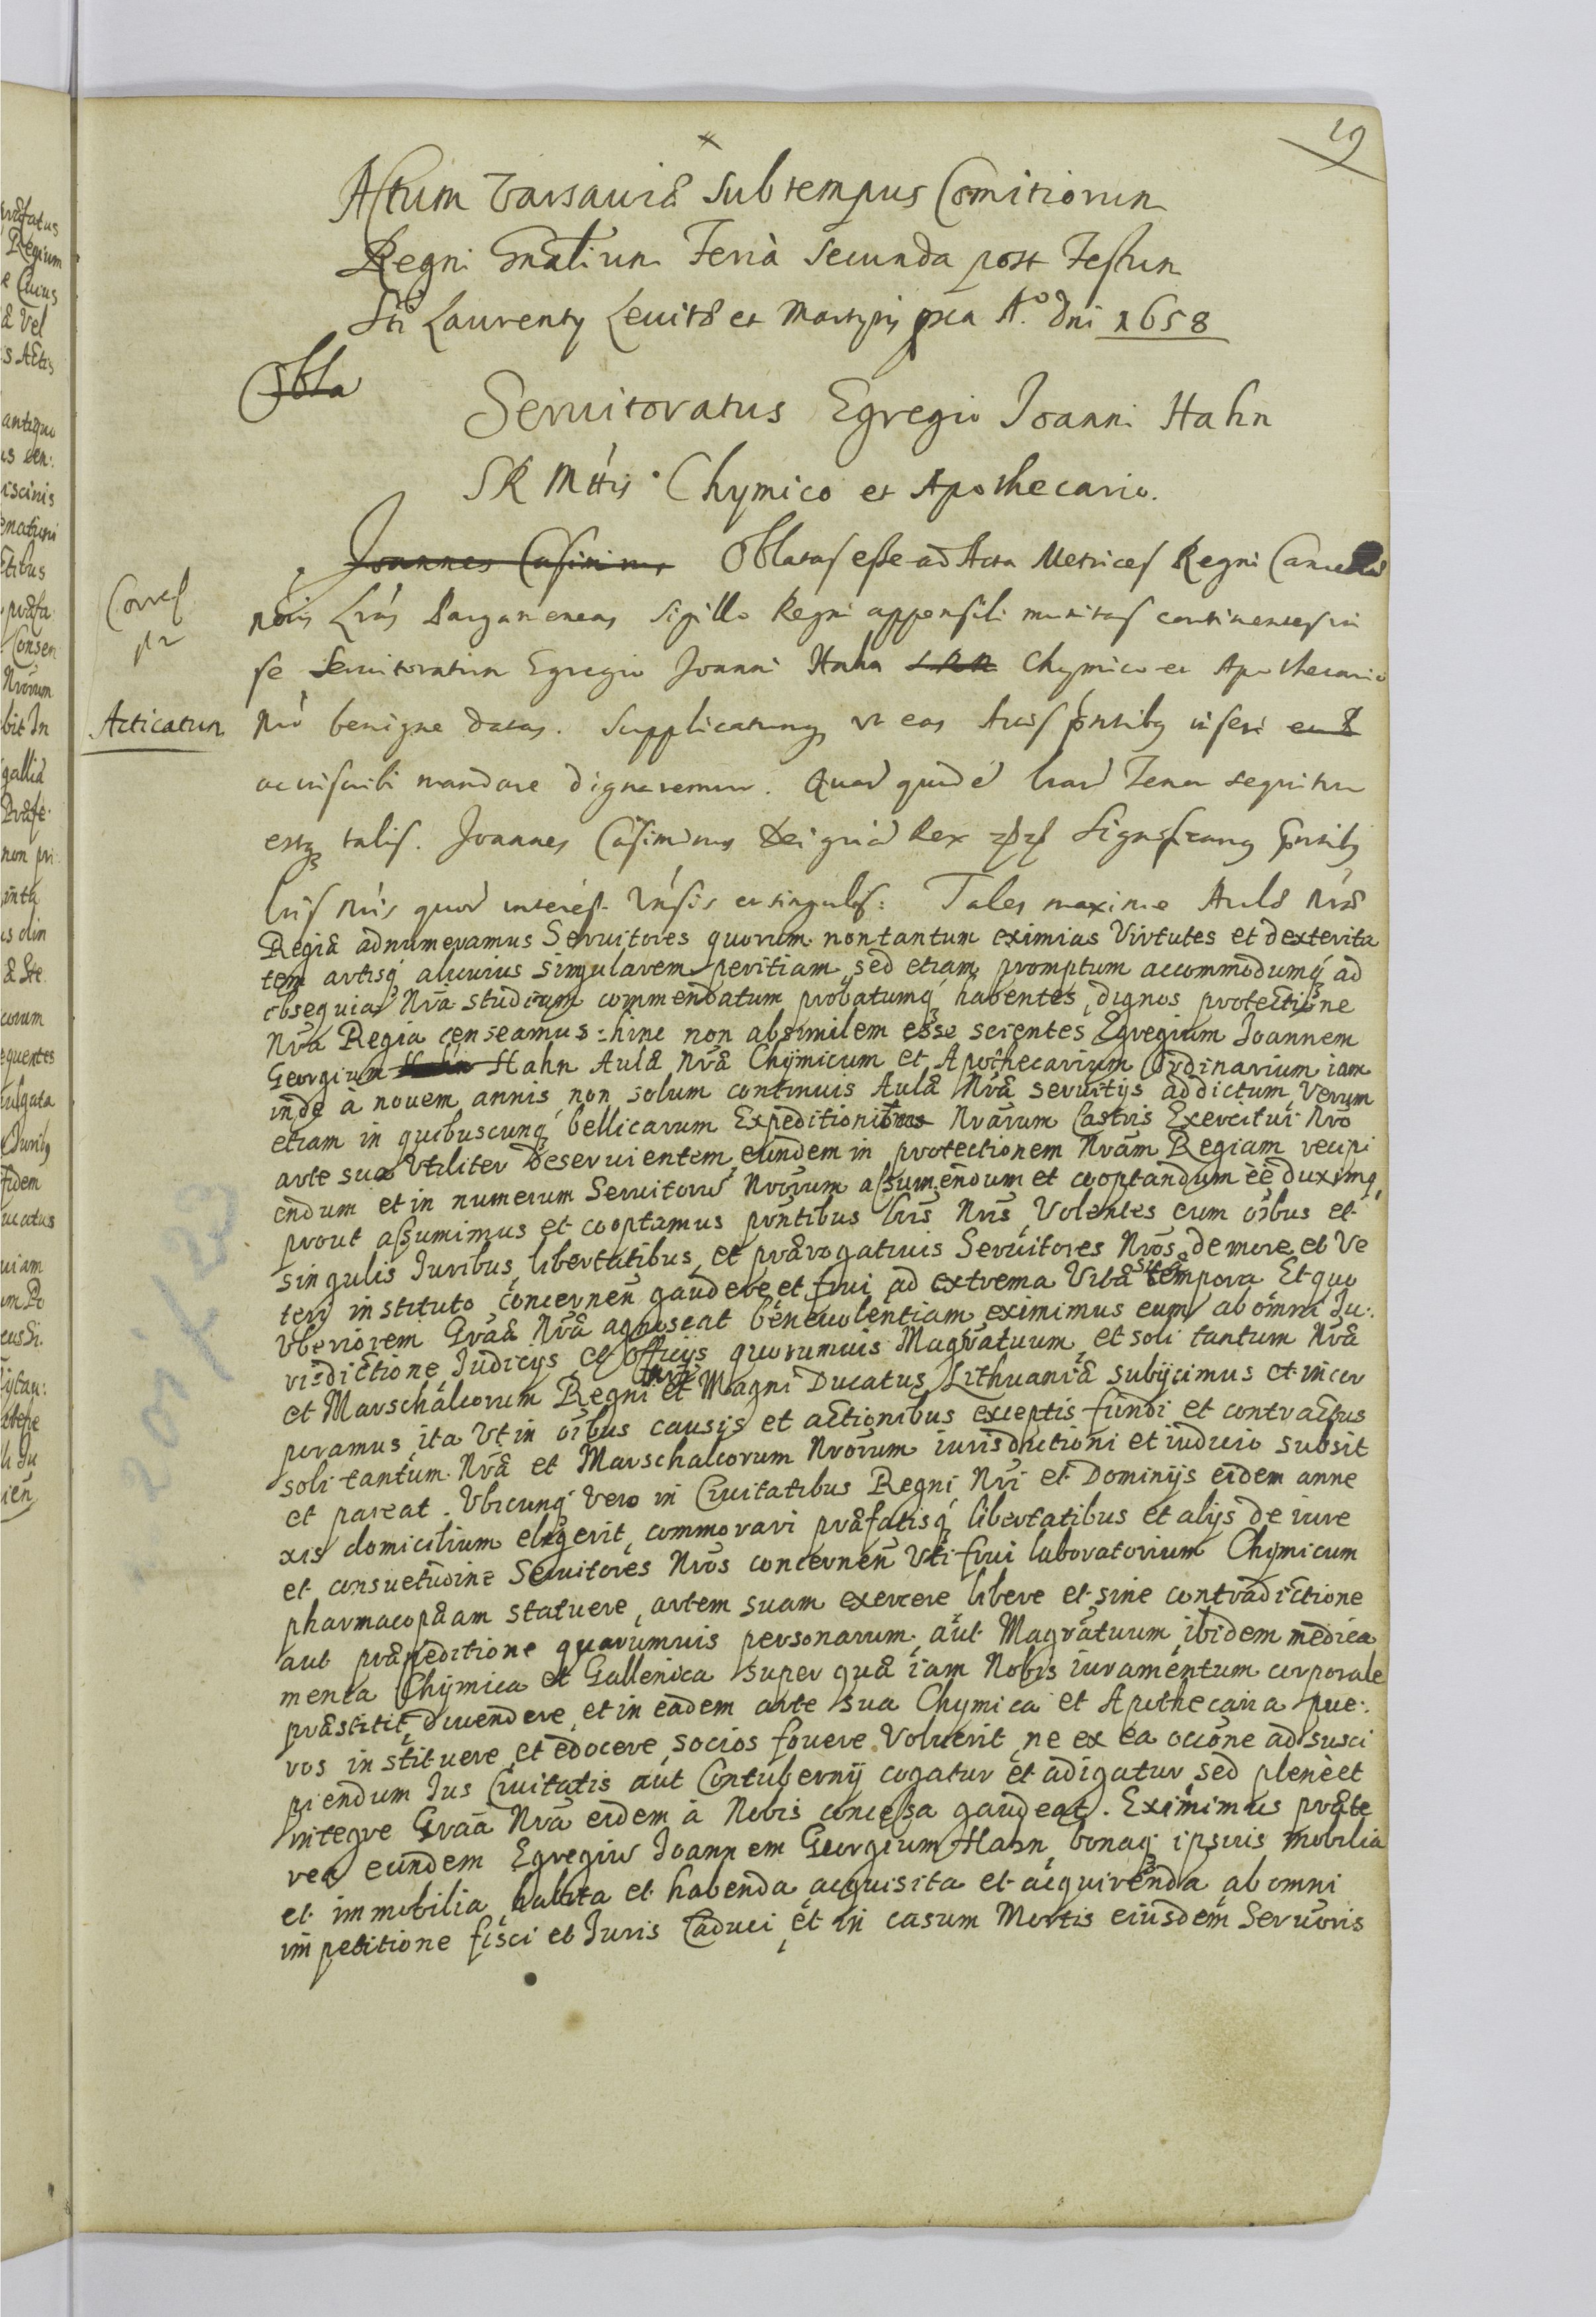 19
Actum Varsaviæ sub tempus Comitiorum
Regni Gnãlium Feria secunda post Festum
Sti Laurenty Levitæ et Martyris pxa Aº. Dni 1658
Obla
Servitoratus Egregio Joanni Hahn
SR Mttis Chymico et Apothecario.
Joannes Casimirus Oblatas esse ad Acta Metrices Regni Cancel
Corres
pr
nõis Lrãs Pargameneas sigillo Regni appensili munitas continentes in
se Servitoratum Egregio Joanni Hahn SRM Chymico et Apothecario
Acticatum
Nrõ benigne datas. Supplicatumq ut eas Actis pñtibq inseri
ac inscribi mandare dignaremur. Quarũ quidẽ lrarũ Tenor sequitur
estq talis. Joannes Casimirus Dei gria Rex Significamq pñtibq
lris nris quorũ interest Vnĩsis et singulis: Tales maxime Aulæ Nræ
Regiæ adnumeramus Servitores quorum non tantum eximias Virtutes et dexterita
tem artisq alicuius singularem peritiam, sed etiam promptum accommodumq ad
obsequia Nrã studium commendatum probatumq habentes, dignos protectione
Nrã Regia censeamus: hinc non absimilem esse scientes Egregium Joannem
Georgium Hahn Hahn Aulæ Nræ Chymicum et Apothecarium Ordinarium iam
inde a novem annis non solum continuis Aulæ Nræ servitijs addictum, Verum
etiam in quibuscunq bellicarum Expeditionibus Nrarum Castris Exercitui Nrõ
arte sua Vtiliter deservientem, eundem in protectionem Nrãm Regiam recipi
endum et in numerum Servitorũ Nrõrum assumendum et cooptandum eẽ duximq,
prout assumimus et cooptamus pñtibus lris Nris, Volentes eum oĩbus et
singulis Juribus, libertatibus, et prærogativis Servitores Nrõs de more et Ve
teri instituto concerneñ gaudere et frui ad extrema Vitæ suæ tempora Et quo
Vberiorem Grãæ Nræ agnoscat benevolentiam eximimus eum ab omni Ju:
risdictione, Judicijs et Officijs quorumvis Magrãtuum, et soli tantum Nræ
et Marschalcorum Regni et Magni Ducatus Lithuaniæ subijcimus et incor
poramus, ita Vt in oĩbus causis et actionibus exceptis fundi et contractus
soli tantum Nræ et Marschalcorum Nrõrum iurisdictioni et iudicio subsit
et pareat. Vbicunq Vero in Civitatibus Regni Nri et Dominijs eidem anne
xis domicilium elegerit, commorari præfatisq libertatibus et alijs de iure
et consuetudine Servitores Nrõs concerneñ Vti frui laboratorium Chymicum
pharmacopæam statuere, artem suam exercere libere et sine contradictione
aut præpeditione quarumvis personarum, aut Magrãtuum, ibidem medica
menta Chymica et Gallenica super quæ iam Nobis iuramentum corporale
præstitit, divendere, et in eadem arte sua Chymica et Apothecaria pue:
ros instituere, et edocere, socios fovere Voluerit, ne ex ea occõne ad susci
piendum Jus Civitatis aut Contubernij cogatur et adigatur, sed plenè et
integre Grãa Nrã eidem à Nobis concessa gaudeat. Eximimus præte
rea eundem Egregiũ Joannem Georgium Hahn, bonaq ipsius mobilia
et immobilia, habita et habenda, acquisita et acquirenda, ab omni
impetitione fisci et Juris Caduci, et in casum Mortis eiusdem Servtoris